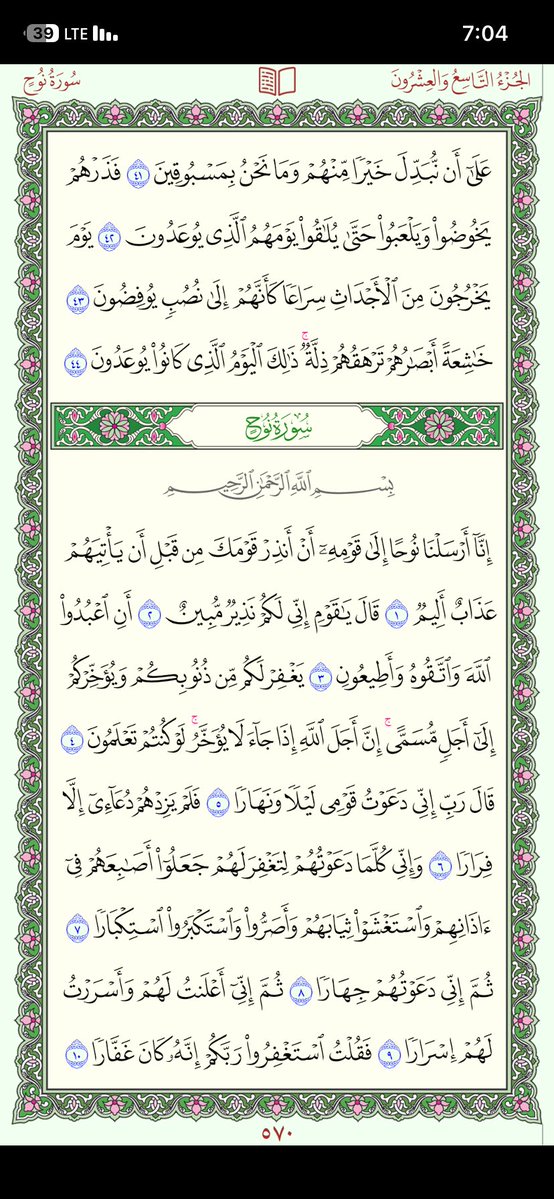 39 LTE 7:04
سُورَةُ نُوحٍ الجُزْءُ التَّاسِعُ وَالعِشْرُونَ
عَلَىٰٓ أَن نُّبَدِّلَ خَيْرٗا مِّنْهُمْ وَمَا نَحْنُ بِمَسْبُوقِينَ ٤١ فَذَرْهُمْ
يَخُوضُواْ وَيَلْعَبُواْ حَتَّىٰ يُلَٰقُواْ يَوْمَهُمُ ٱلَّذِي يُوعَدُونَ ٤٢ يَوْمَ
يَخْرُجُونَ مِنَ ٱلْأَجْدَاثِ سِرَاعٗا كَأَنَّهُمْ إِلَىٰ نُصُبٖ يُوفِضُونَ ٤٣
خَٰشِعَةً أَبْصَٰرُهُمْ تَرْهَقُهُمْ ذِلَّةٞۚ ذَٰلِكَ ٱلْيَوْمُ ٱلَّذِي كَانُواْ يُوعَدُونَ ٤٤
سُورَةُ نُوحٍ
بِسْمِ ٱللَّهِ ٱلرَّحْمَٰنِ ٱلرَّحِيمِ
إِنَّآ أَرْسَلْنَا نُوحًا إِلَىٰ قَوْمِهِۦٓ أَنْ أَنذِرْ قَوْمَكَ مِن قَبْلِ أَن يَأْتِيَهُمْ
عَذَابٌ أَلِيمٞ ١ قَالَ يَٰقَوْمِ إِنِّي لَكُمْ نَذِيرٞ مُّبِينٌ ٢ أَنِ ٱعْبُدُواْ
ٱللَّهَ وَٱتَّقُوهُ وَأَطِيعُونِ ٣ يَغْفِرْ لَكُم مِّن ذُنُوبِكُمْ وَيُؤَخِّرْكُمْ
إِلَىٰٓ أَجَلٖ مُّسَمًّىۚ إِنَّ أَجَلَ ٱللَّهِ إِذَا جَآءَ لَا يُؤَخَّرُۚ لَوْ كُنتُمْ تَعْلَمُونَ ٤
قَالَ رَبِّ إِنِّي دَعَوْتُ قَوْمِي لَيْلٗا وَنَهَارٗا ٥ فَلَمْ يَزِدْهُمْ دُعَآءِيٓ إِلَّا
فِرَارٗا ٦ وَإِنِّي كُلَّمَا دَعَوْتُهُمْ لِتَغْفِرَ لَهُمْ جَعَلُوٓاْ أَصَٰبِعَهُمْ فِيٓ
ءَاذَانِهِمْ وَٱسْتَغْشَوْاْ ثِيَابَهُمْ وَأَصَرُّواْ وَٱسْتَكْبَرُواْ ٱسْتِكْبَارٗا ٧
ثُمَّ إِنِّي دَعَوْتُهُمْ جِهَارٗا ٨ ثُمَّ إِنِّيٓ أَعْلَنتُ لَهُمْ وَأَسْرَرْتُ
لَهُمْ إِسْرَارٗا ٩ فَقُلْتُ ٱسْتَغْفِرُواْ رَبَّكُمْ إِنَّهُۥ كَانَ غَفَّارٗا ١٠
٥٧٠